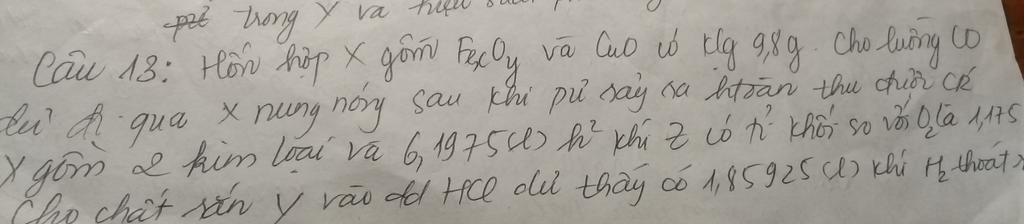 trong Y và hiệu
Câu 13: Hỗn hợp X gồm FexOy và CuO có klg 9,8g. Cho luồng CO
dư đi qua X nung nóng sau khi pứ xảy ra htoàn thu được CR
Y gồm 2 kim loại và 6,1975(l) h² khí Z có tỉ khối so với O2 là 1,175
Cho chất rắn Y vào dd HCl dư thấy có 1,85925(l) khí H2 thoát